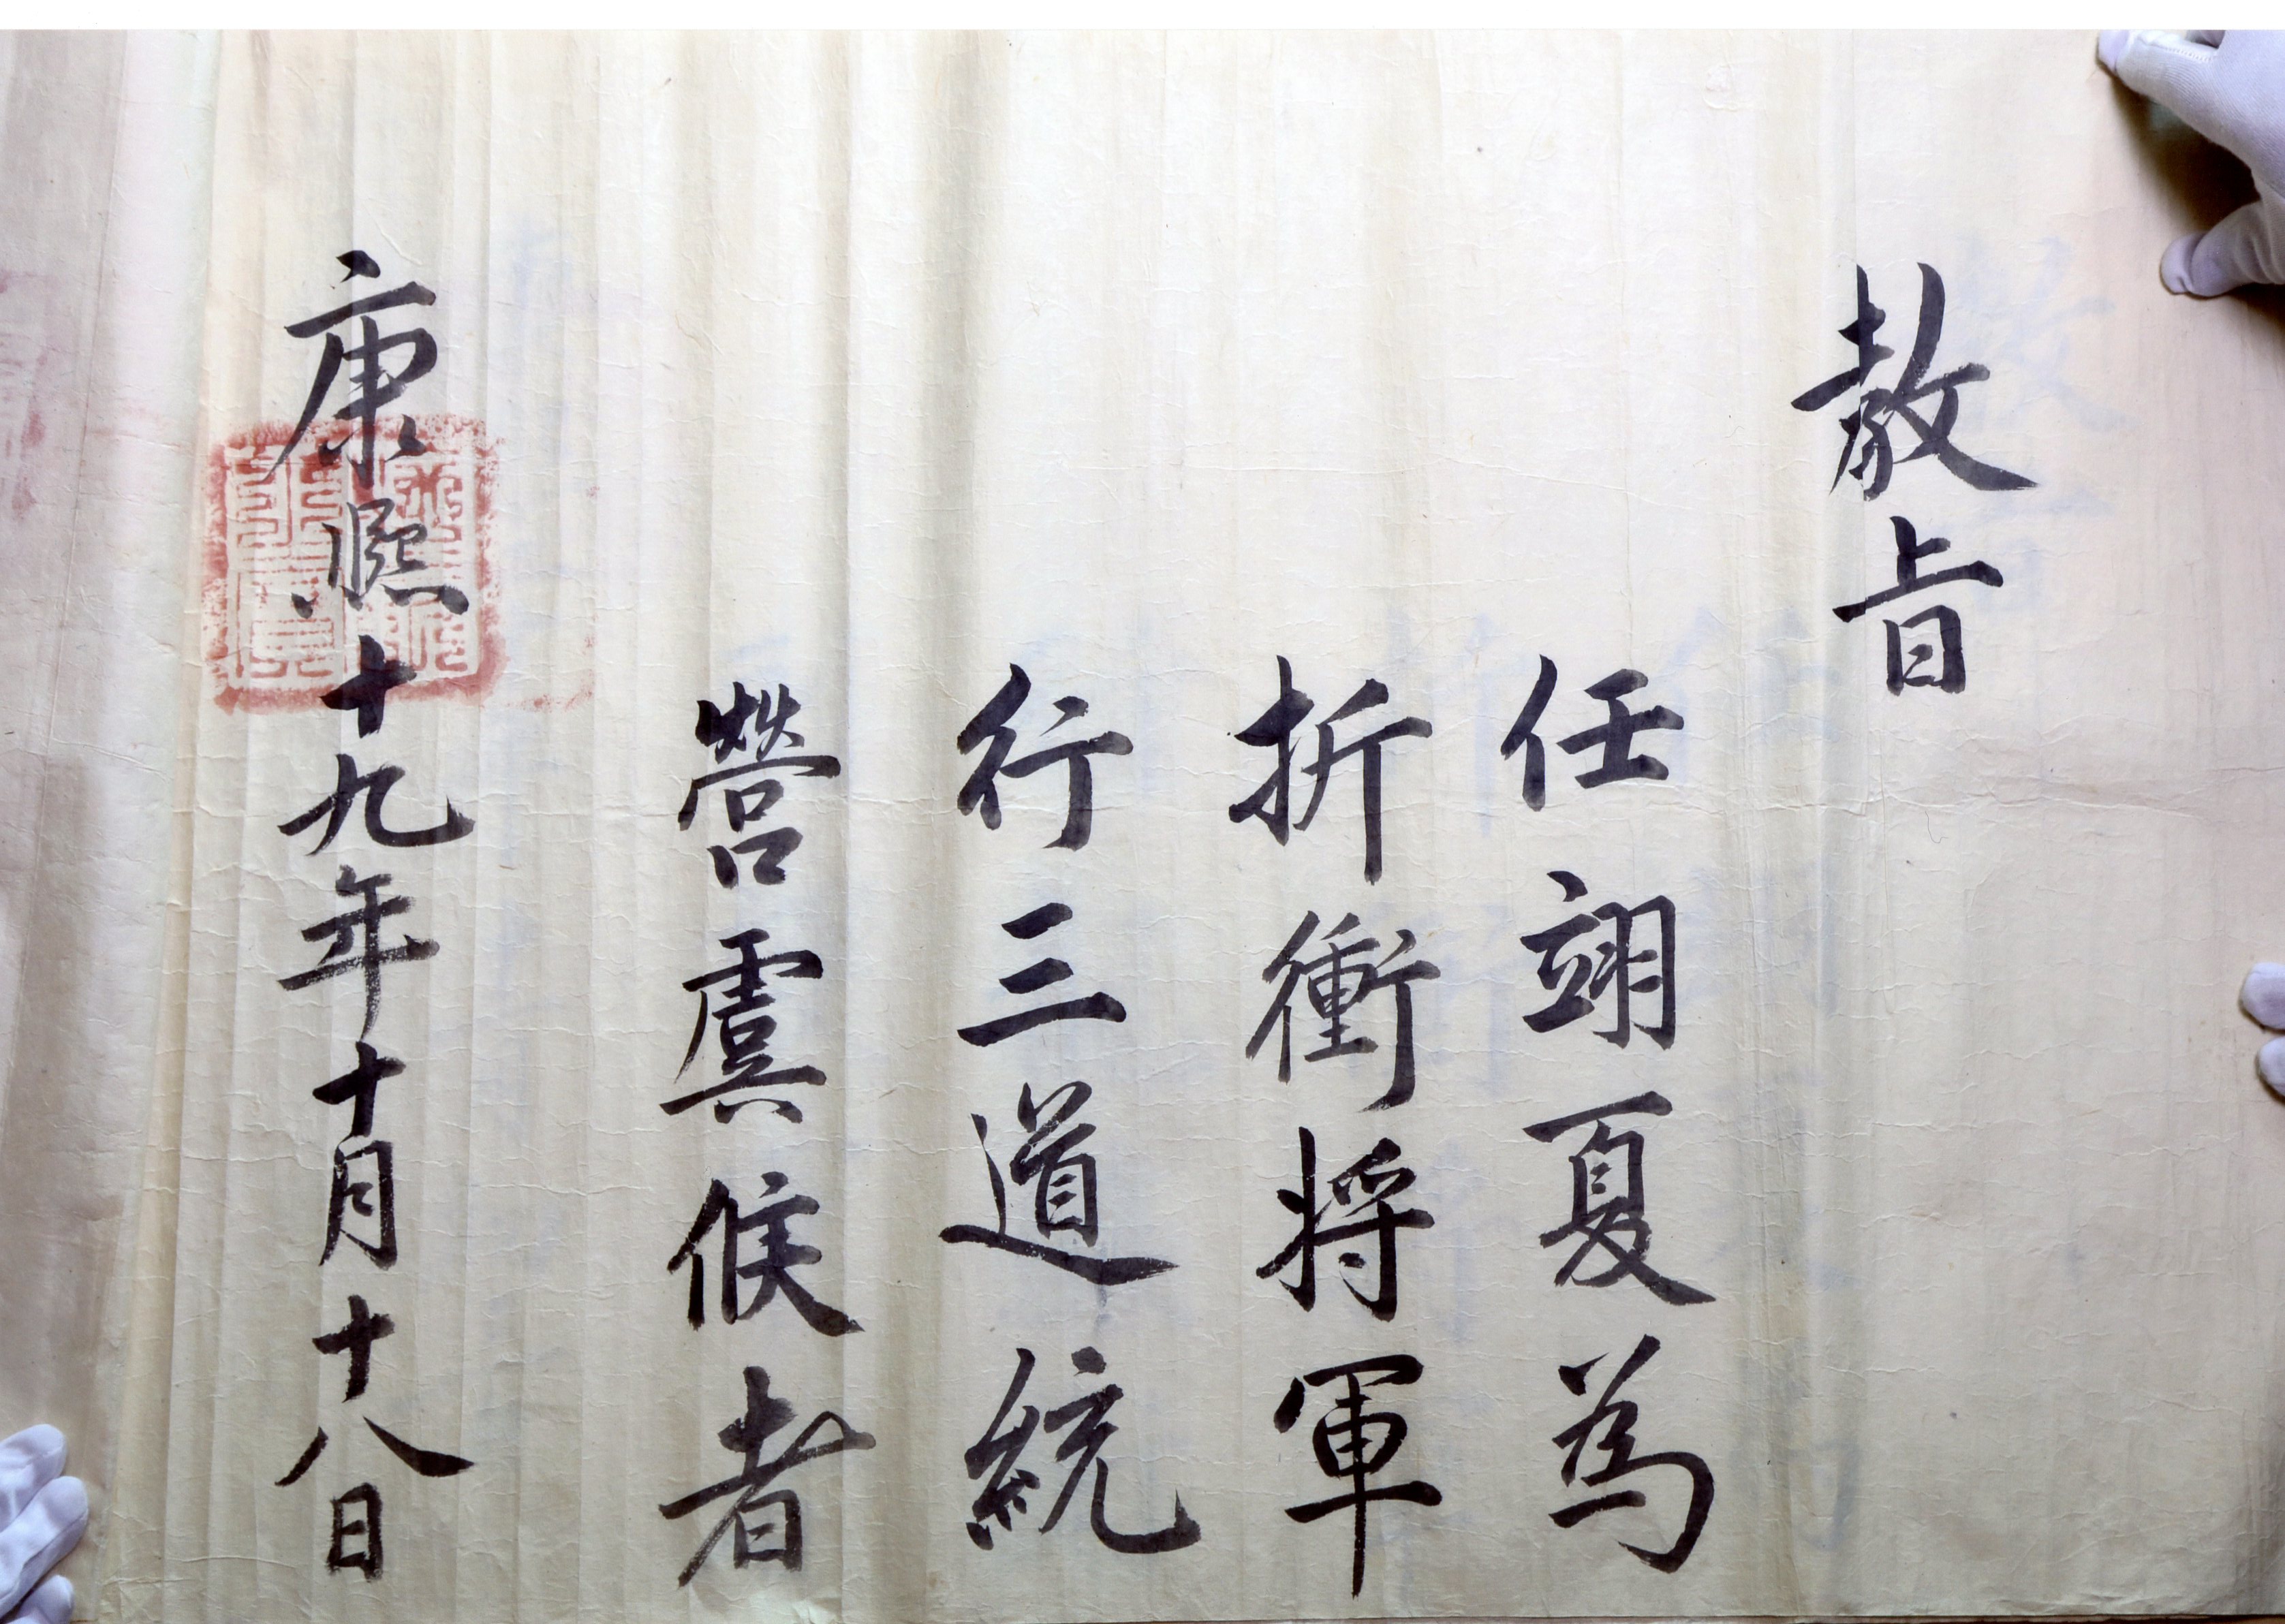 教旨
任翊夏為
折衝将軍
行三道統
營虞候者
康熈十九年十月十八日